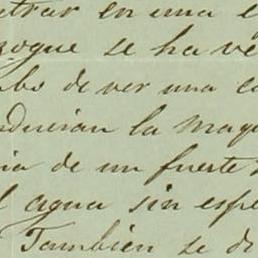 trar en una e
zogue se ha ve
de ver una c
ducian la maq
ia de un fuerte
l agua sin espe
Tambien se di